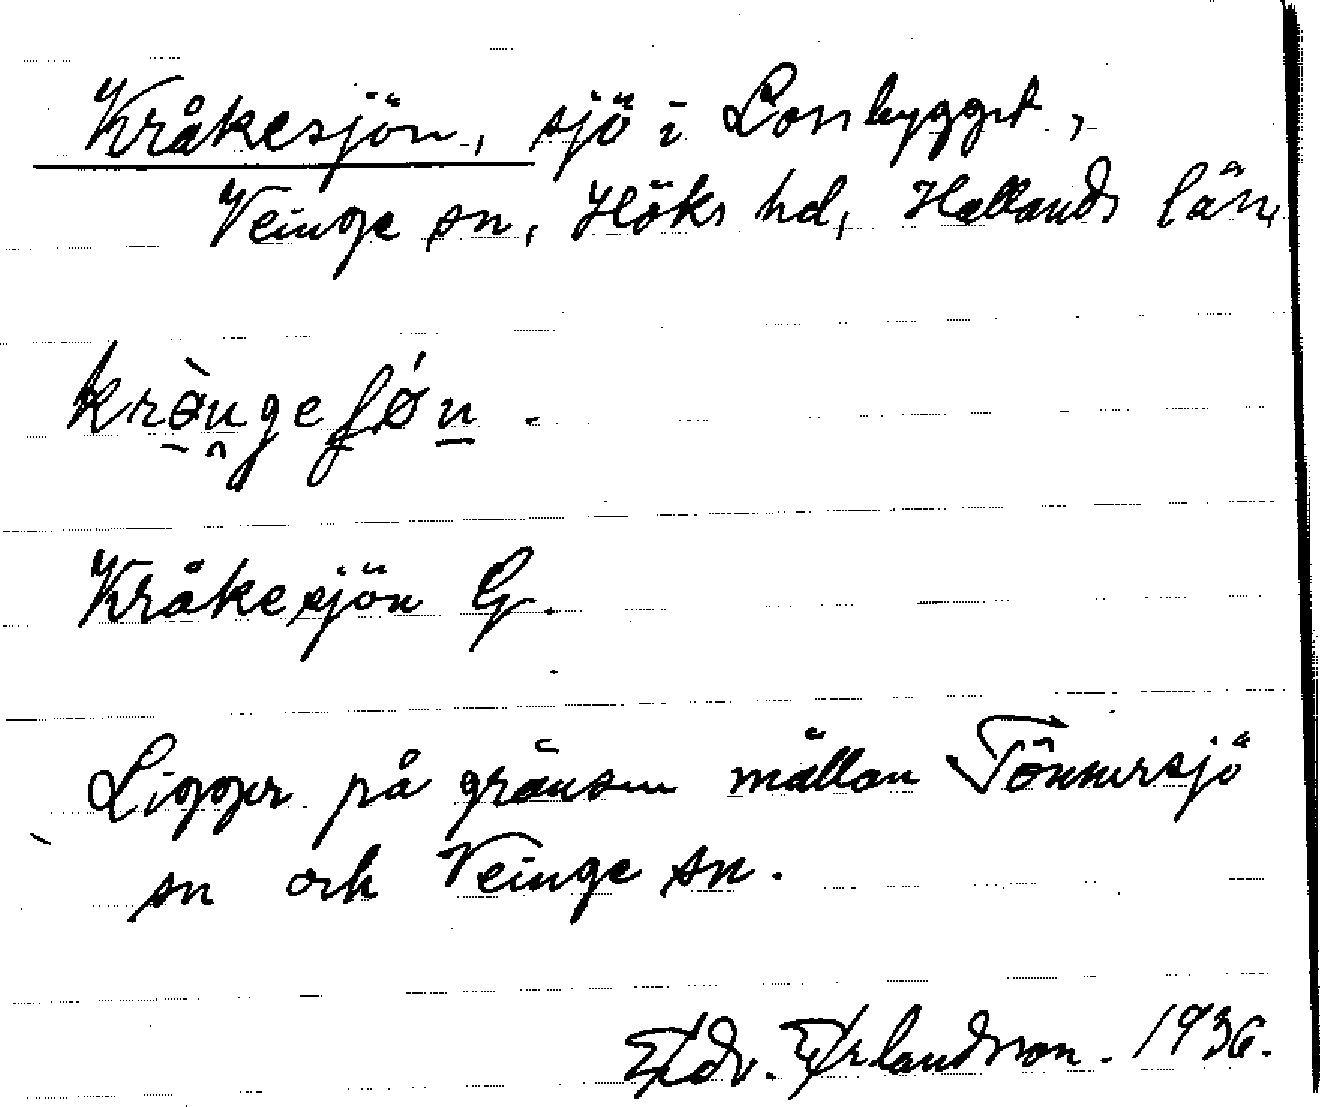 Kråkesjön, sjö i Lonbygget,
Veinge sn, Höks hd, Hallands län,
Kråkesjön G.
Ligger på gränsen mällan Tönnersjö
sn och Veinge sn.
Edv. Erlandsson. 1936.